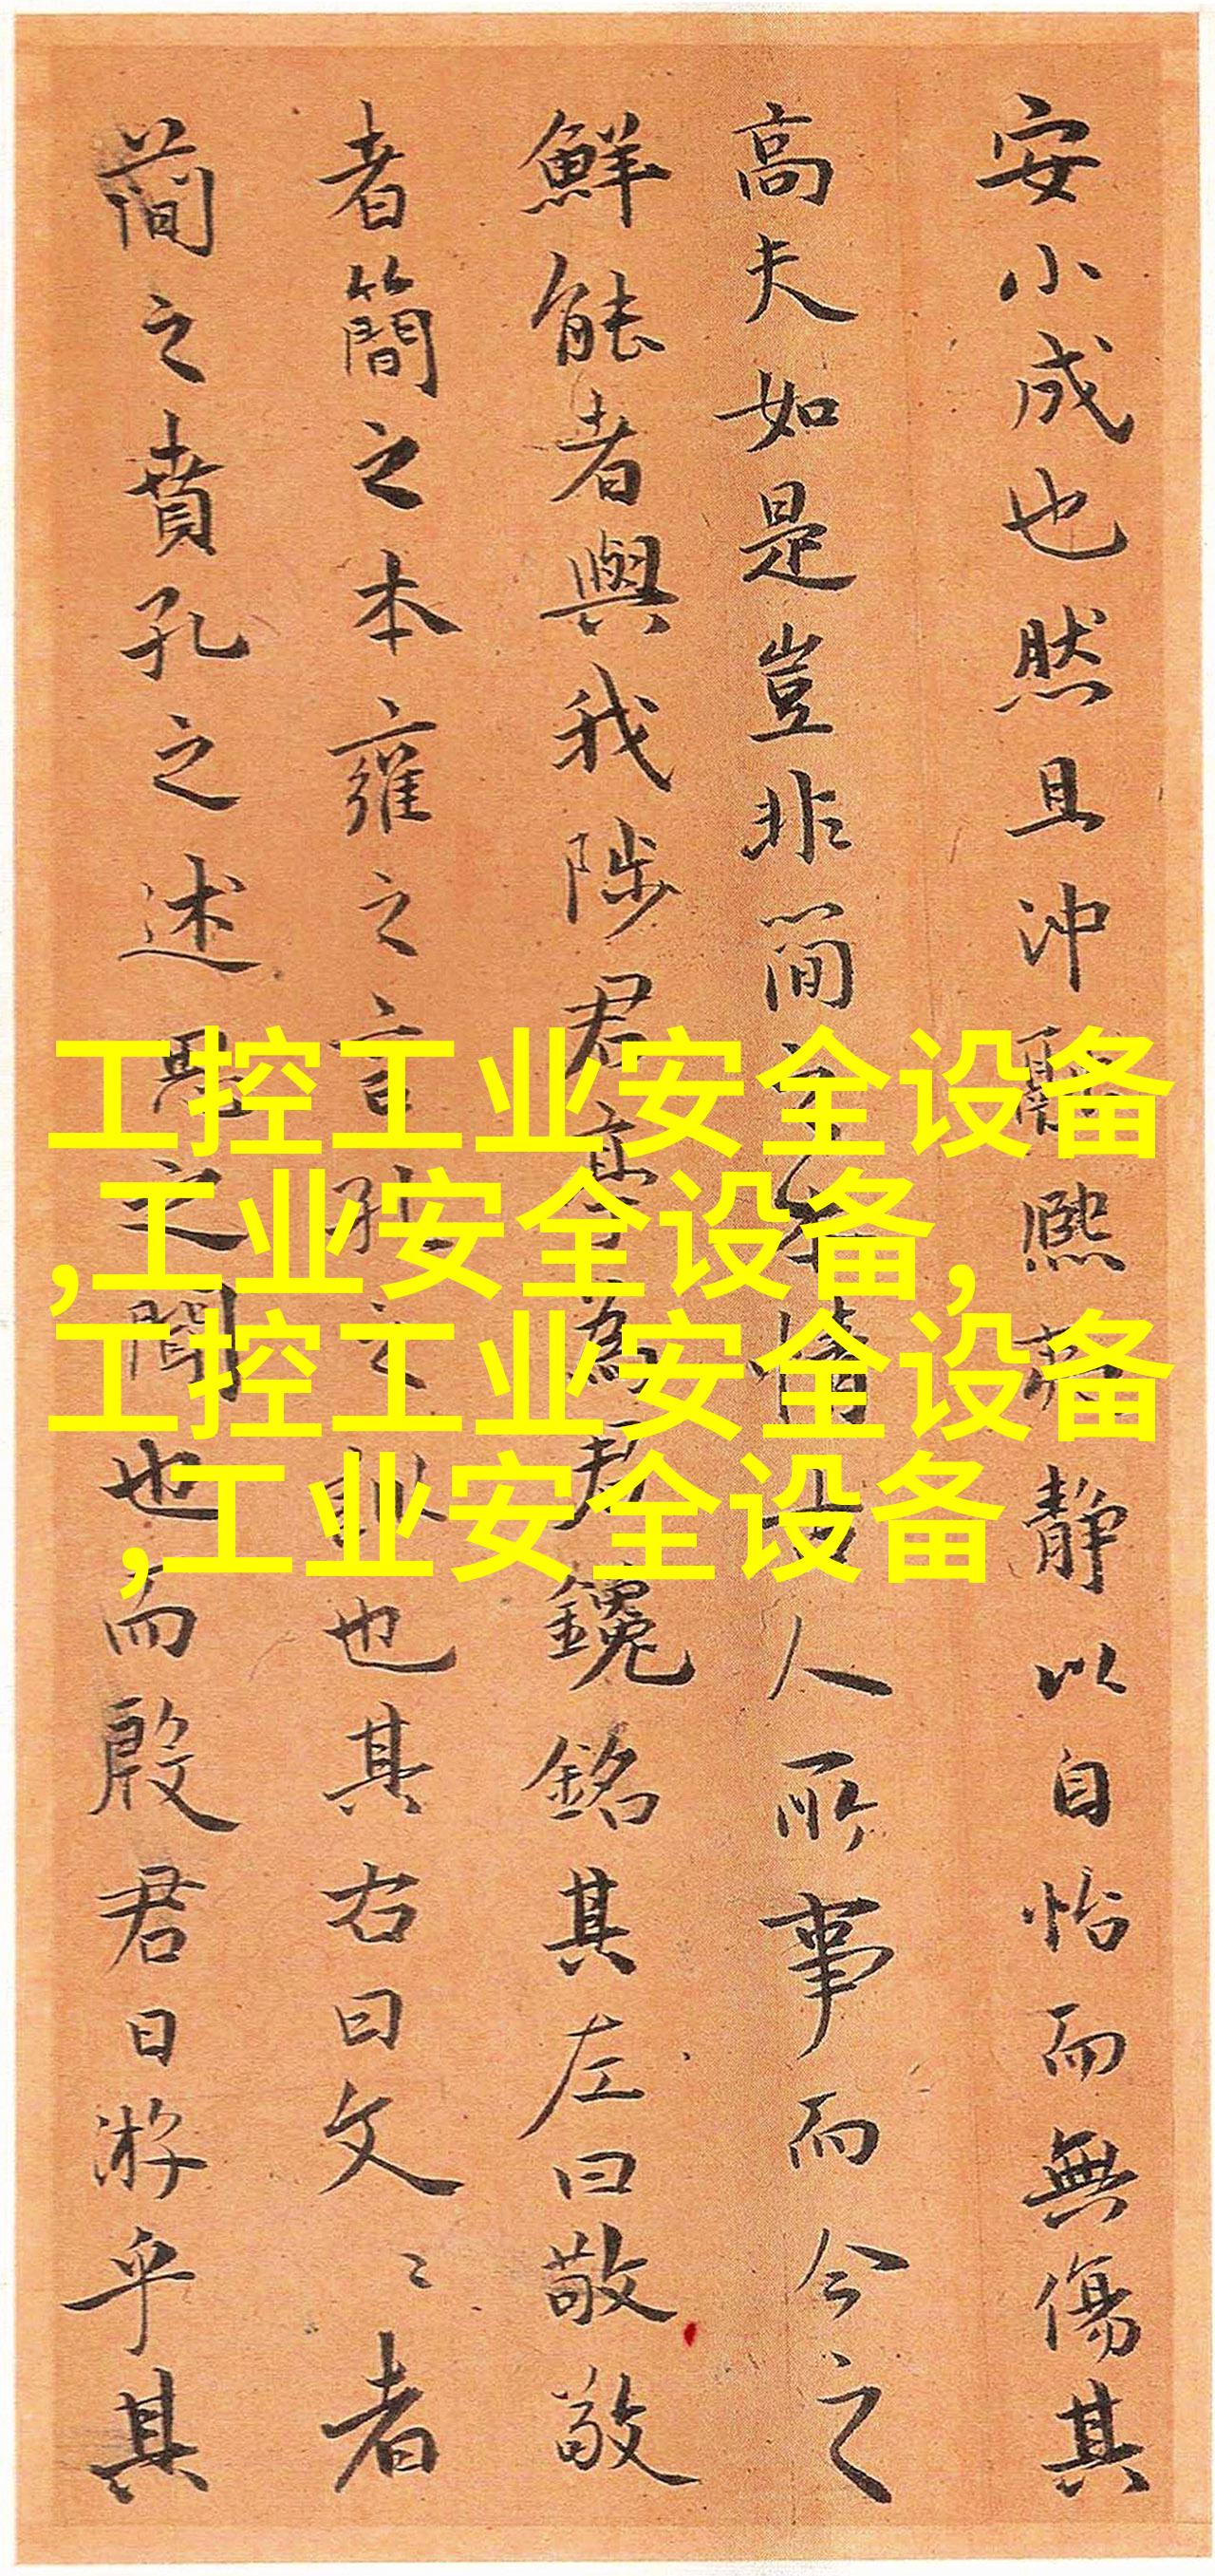 安小成也然且沖 熙 静以自怡而無傷其
高夫如是豈非簡 情 人所事而今之
鮮能者與我陟君 為 銘其左曰敬敬
者簡之本雍之言 之 也其右曰文〻者
蕳之賁孔之述 之間也而殷君日游乎其
工控工业安全设备
,工业安全设备,
工控工业安全设备
,工业安全设备